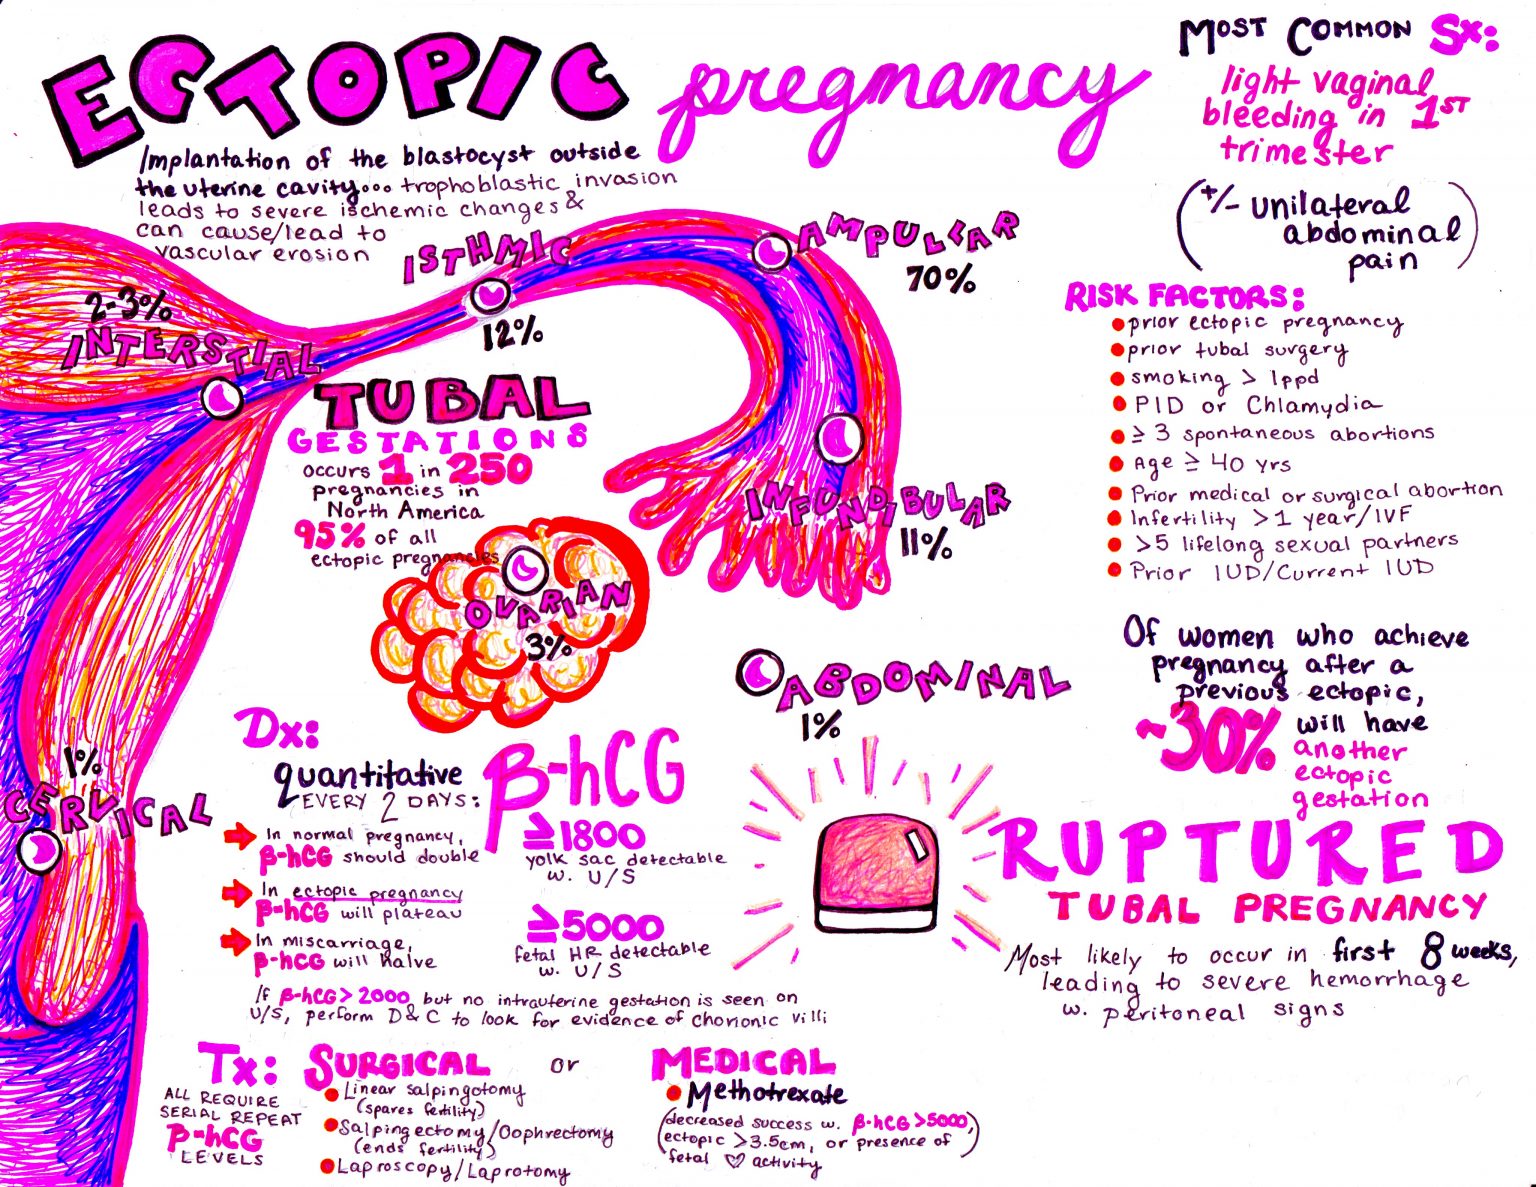 ECTOPIC pregnancy
Implantation of the blastocyst outside
the uterine cavity... trophoblastic invasion
leads to severe ischemic changes &
can cause/lead to
vascular erosion
MOST COMMON Sx:
light vaginal
bleeding in 1ST
trimester
(+/- unilateral
abdominal
pain)
ISTHMIC
12%
AMPULLAR
70%
2-3%
INTERSTIAL
INFUNDIBULAR
11%
TUBAL
GESTATIONS
occurs 1 in 250
pregnancies in
North America
95% of all
ectopic pregnancies
OVARIAN
3%
ABDOMINAL
1%
1%
CERVICAL
RISK FACTORS:
prior ectopic pregnancy
prior tubal surgery
smoking > 1ppd
PID or Chlamydia
≥ 3 spontaneous abortions
Age ≥ 40 yrs
Prior medical or surgical abortion
Infertility > 1 year/IVF
>5 lifelong sexual partners
Prior IUD/Current IUD
Of women who achieve
pregnancy after a
previous ectopic,
~30% will have
another
ectopic
gestation
Dx:
quantitative β-hCG
EVERY 2 DAYS:
→ In normal pregnancy,
β-hCG should double
→ In ectopic pregnancy
β-hCG will plateau
→ In miscarriage,
β-hCG will halve
≥1800
yolk sac detectable
w. U/S
≥5000
fetal HR detectable
w. U/S
If β-hCG > 2000 but no intrauterine gestation is seen on
U/S, perform D&C to look for evidence of chorionic villi
RUPTURED
TUBAL PREGNANCY
Most likely to occur in first 8 weeks,
leading to severe hemorrhage
w. peritoneal signs
Tx:
ALL REQUIRE
SERIAL REPEAT
β-hCG
LEVELS
SURGICAL or
Linear salpingotomy
(spares fertility)
Salpingectomy/Oophrectomy
(ends fertility)
Laproscopy/Laprotomy
MEDICAL
Methotrexate
(decreased success w. β-hCG >5000,
ectopic >3.5cm, or presence of
fetal ♡ activity)